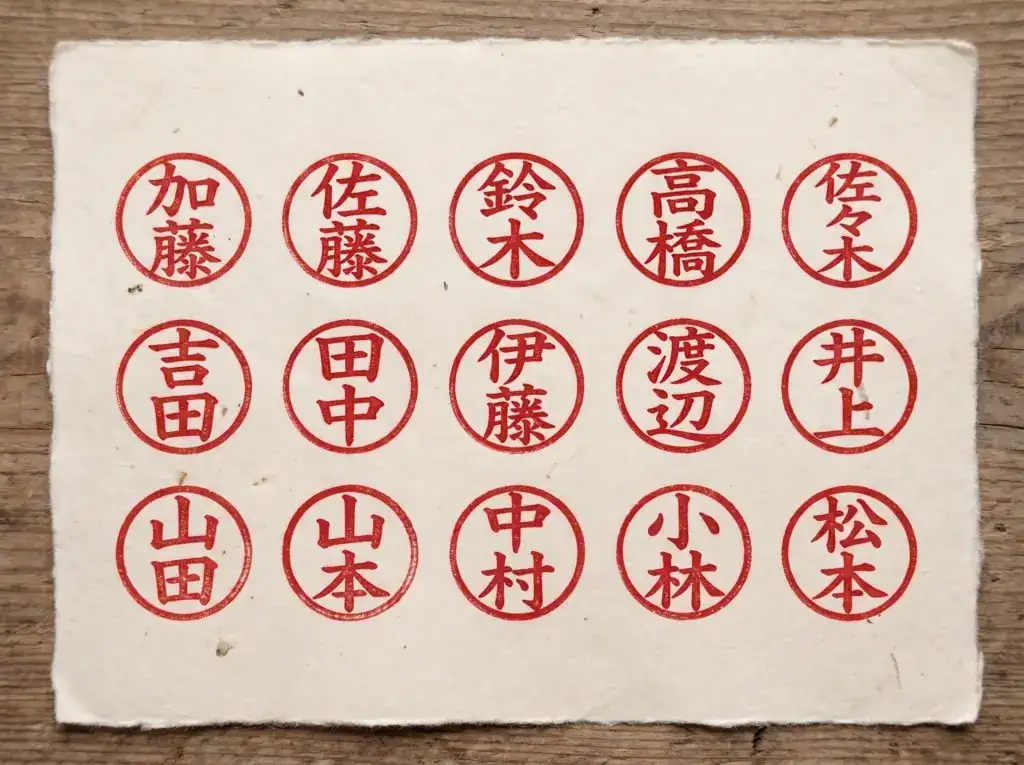 加藤 佐藤 鈴木 高橋 佐々木
吉田 田中 伊藤 渡辺 井上
山田 山本 中村 小林 松本